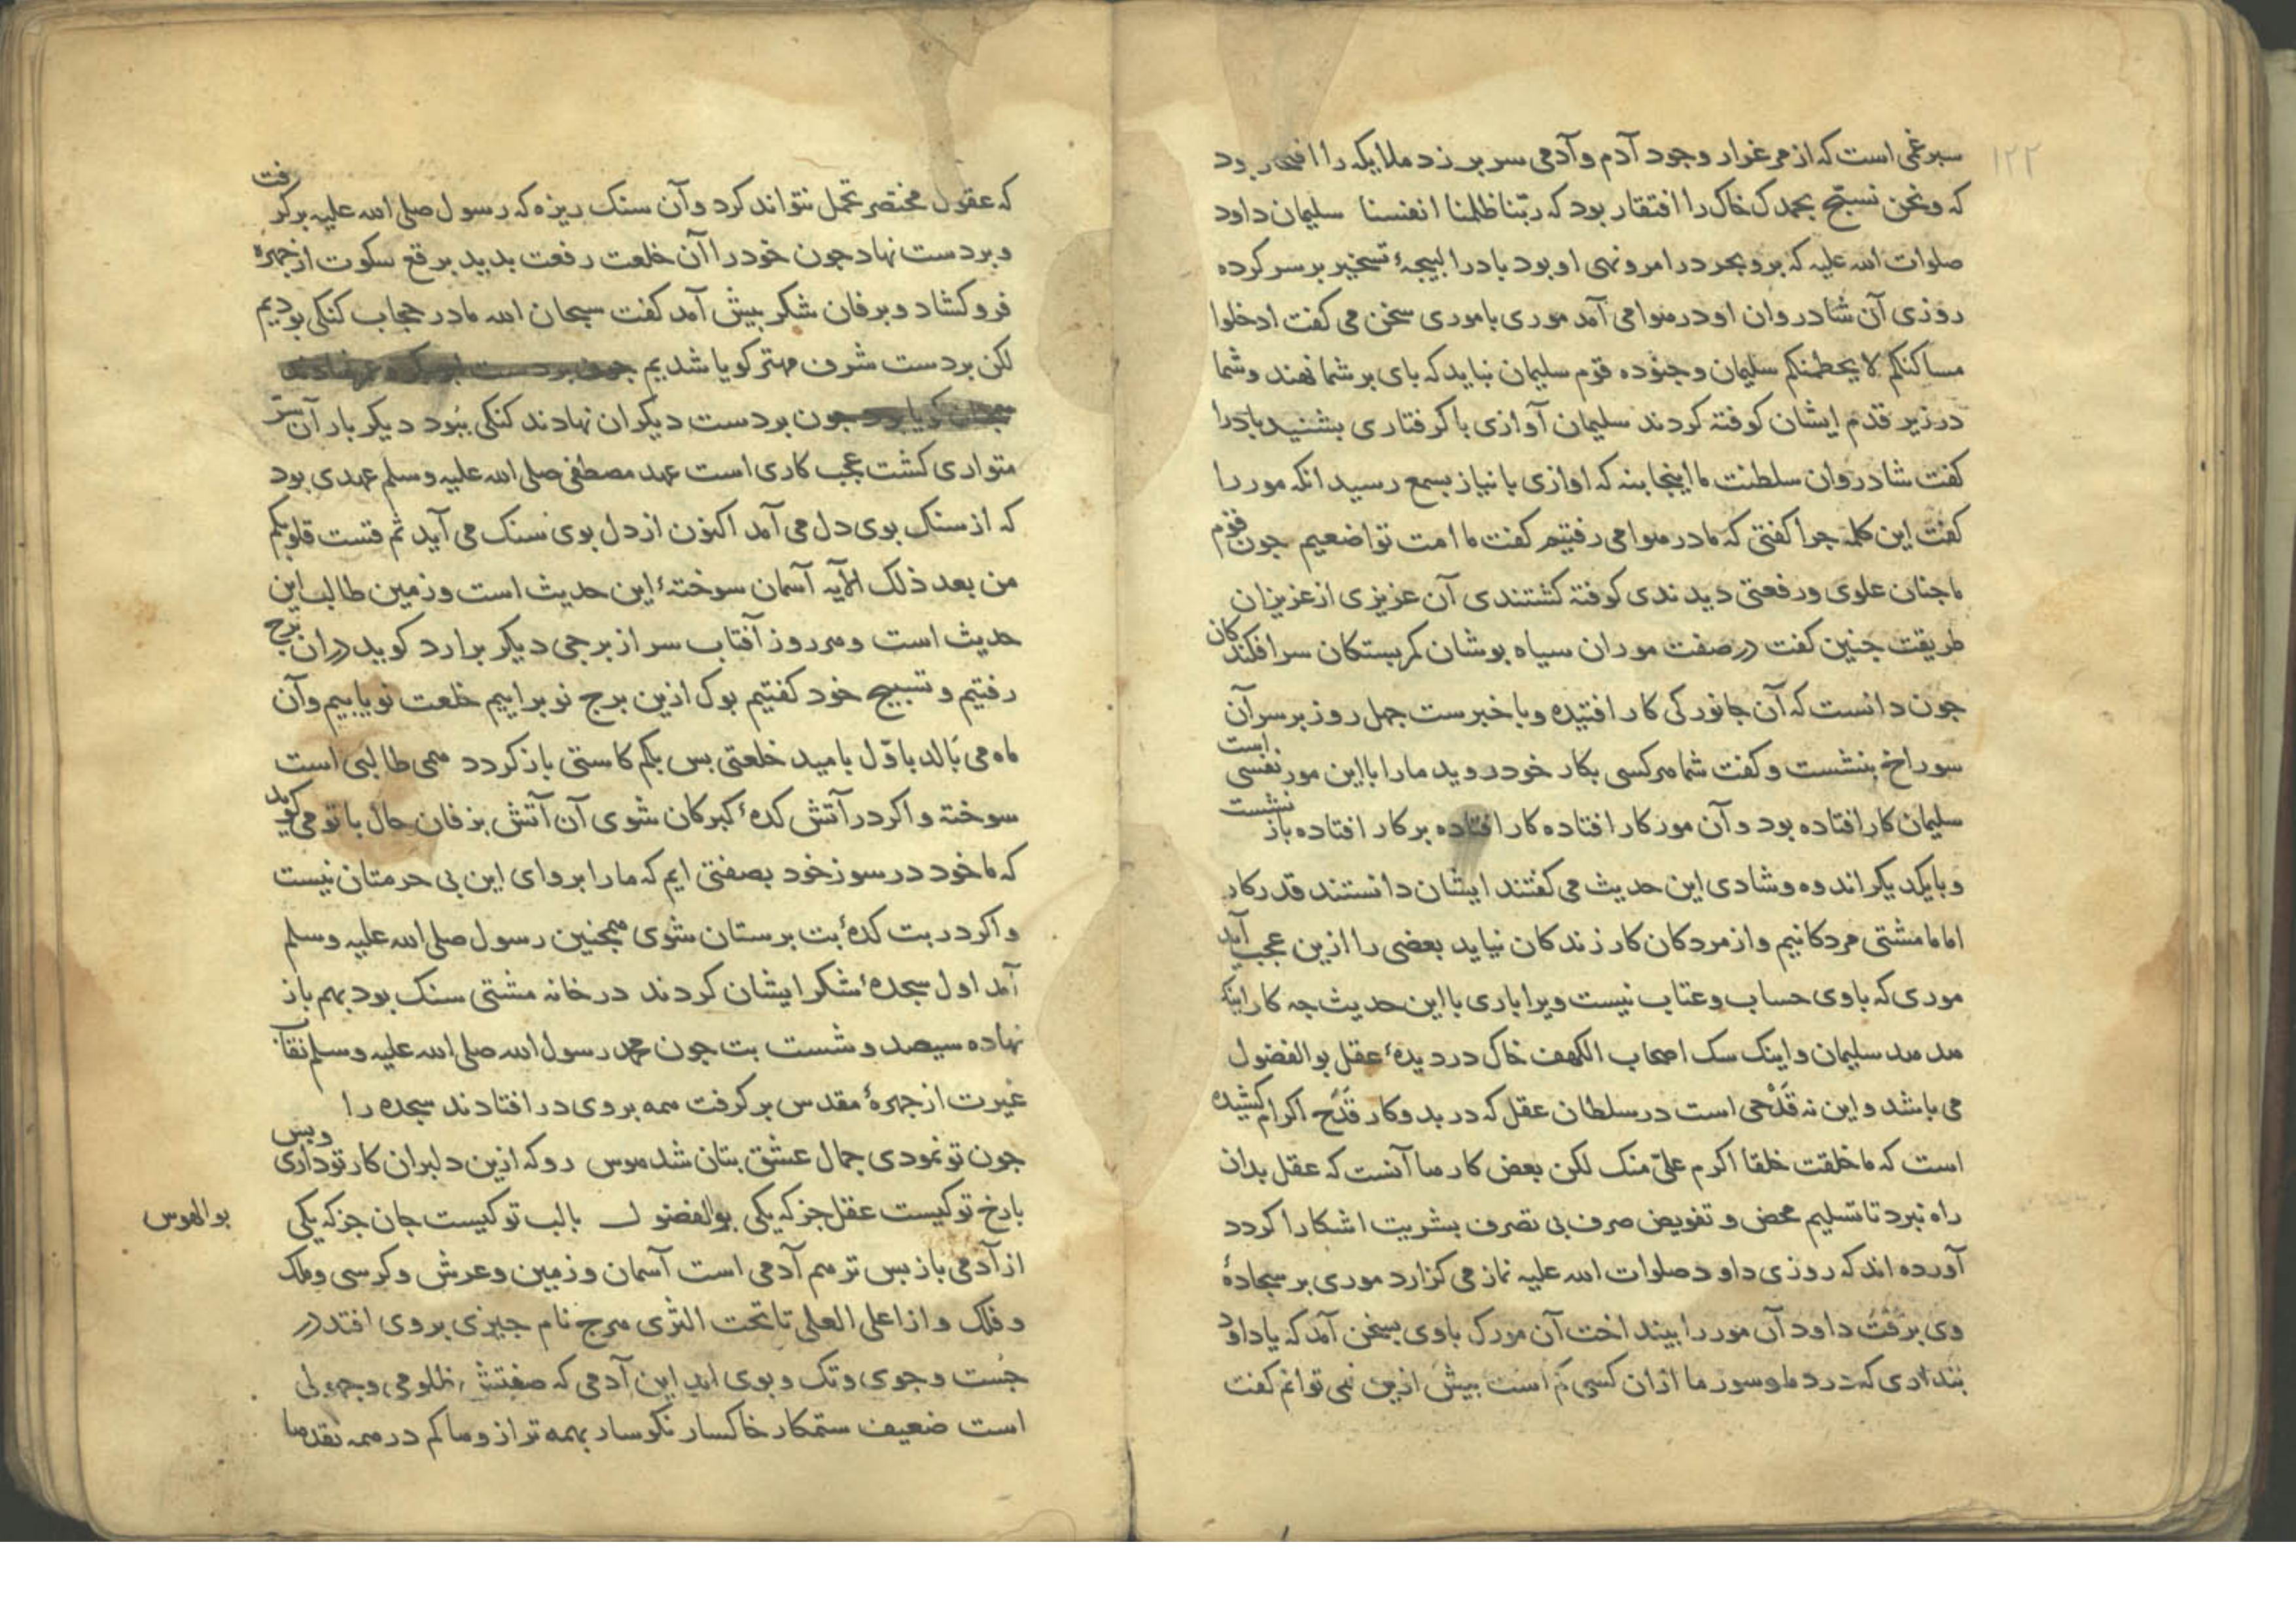 ۱۲۲
سیرغمی است که از مرغزار وجود آدم و آدمی سر بر زد ملایکه را افتخار بود
که ونحن نسبّح بحمدک خاک را افتقار بود که ربّنا ظلمنا انفسنا سلیمان داود
صلوات الله علیه که بر و بحر در امر و نهی او بود باد را تسخیر بر سر کرده
روزی آن شادروان او در هوا می آمد موری با موری سخن می کفت ادخلوا
مساکنکم لا یحطمنکم سلیمان وجنوده قوم سلیمان نباید که بای بر شما نهند و شما
در زیر قدم ایشان کوفته کردند سلیمان آوازی با کرفتاری بشنید باد را
کفت شادروان سلطنت ما اینجا بنه که اوازی با نیاز بسمع رسید انکه مور را
کفت این کلمه جرا کفتی که ما در هوا می رفتیم کفت ما امت تواضعیم جون قوم
ما جنان علوی و رفعتی دیدندی کوفته کشتندی آن عزیزی از عزیزان
طریقت جنین کفت در صفت موران سیاه بوشان کمر بستکان سر افکندکان
جون دانست که آن جانورکی کار افتیده و با خبرست جهل روز بر سر آن
سوراخ بنشست و کفت شما هر کسی بکار خود روید ما را با این مور نفسی است
سلیمان کار افتاده بود و آن مور کار افتاده کار افتاده بر کار افتاده باز نشست
و با یکدیکر اندوه و شادی این حدیث می کفتند ایشان دانستند قدر کار
اما ما مشتی مردکانیم و از مردکان کار زندکان نیاید بعضی را ازین عجب آید
موری که با وی حساب و عتاب نیست ویرا باری با این حدیث جه کار اینک
هدهد سلیمان و اینک سک اصحاب الکهف خاک در دیدهٔ عقل بوالفضول
می باشد و این نه قَدْحی است در سلطان عقل که در بدو کار قدح اکرام کشیده
است که ما خلقت خلقا اکرم علیّ منک لکن بعض کارها آنست که عقل بدان
راه نبرد تا تسلیم محض و تفویض صرف بی تصرف بشریت اشکارا کردد
آورده اند که روزی داود صلوات الله علیه نماز می کزارد موری بر سجادهٔ
وی برفت داود آن مور را بینداخت آن مورک با وی بسخن آمد که یا داود
بنداری که درد ما و سوز ما ازان کسی کم است بیش ازین نمی توانم کفت
که عقول مختصر تحمل نتواند کرد و آن سنک ریزه که رسول صلی الله علیه برکرفت
و بر دست نهاد جون خود را آن خلعت رفعت بدید برقع سکوت از جهره
فرو کشاد و بزفان شکر بیش آمد کفت سبحان الله ما در حجاب کنکی بودیم
لکن بر دست شرف مهتر کویا شدیم
جون بر دست دیکران نهادند کنکی ببود دیکر بار آن سرّ
متواری کشت عجب کاری است عهد مصطفی صلی الله علیه وسلم عهدی بود
که از سنک بوی دل می آمد اکنون از دل بوی سنک می آید ثم قست قلوبکم
من بعد ذلک الآیه آسمان سوختهٔ این حدیث است و زمین طالب این
حدیث است و هر روز آفتاب سر از برجی دیکر برارد کوید در ان برج
رفتیم و تسبیح خود کفتیم بوک ازین برج نو براییم خلعت نو یابیم و آن
ماه می بالد باوّل بامید خلعتی بس بکم کاستی باز کردد همی طالبی است
سوخته و اکر در آتش کدهٔ کبرکان شوی آن آتش بزفان حال با تو می کوید
که ما خود در سوز خود بصفتی ایم که ما را بروای این بی حرمتان نیست
و اکر در بت کدهٔ بت برستان شوی همجنین رسول صلی الله علیه وسلم
آمد اول سجدهٔ شکر ایشان کردند در خانه مشتی سنک بود بهم باز
نهاده سیصد و شست بت جون محمد رسول الله صلی الله علیه وسلم نقاب
غیرت از جهرهٔ مقدس بر کرفت همه بروی در افتادند سجده را
جون تو نمودی جمال عشق بتان شد هوس رو که ازین دلبران کار تو داری و بس
با رخ تو کیست عقل جز که یکی بوالفضول با لب تو کیست جان جز که یکی
بوالهوس
از آدمی باز بس تر هم آدمی است آسمان و زمین و عرش و کرسی و ملک
و فلک و از اعلی العلی تا تحت الثری هرج نام جیزی بروی افتد در
جُست و جوی و تک و بوی اند این آدمی که صفتش ظلومی و جهولی
است ضعیف ستمکار خاکسار نکوسار بهمه ترازوها کم در همه نقدها